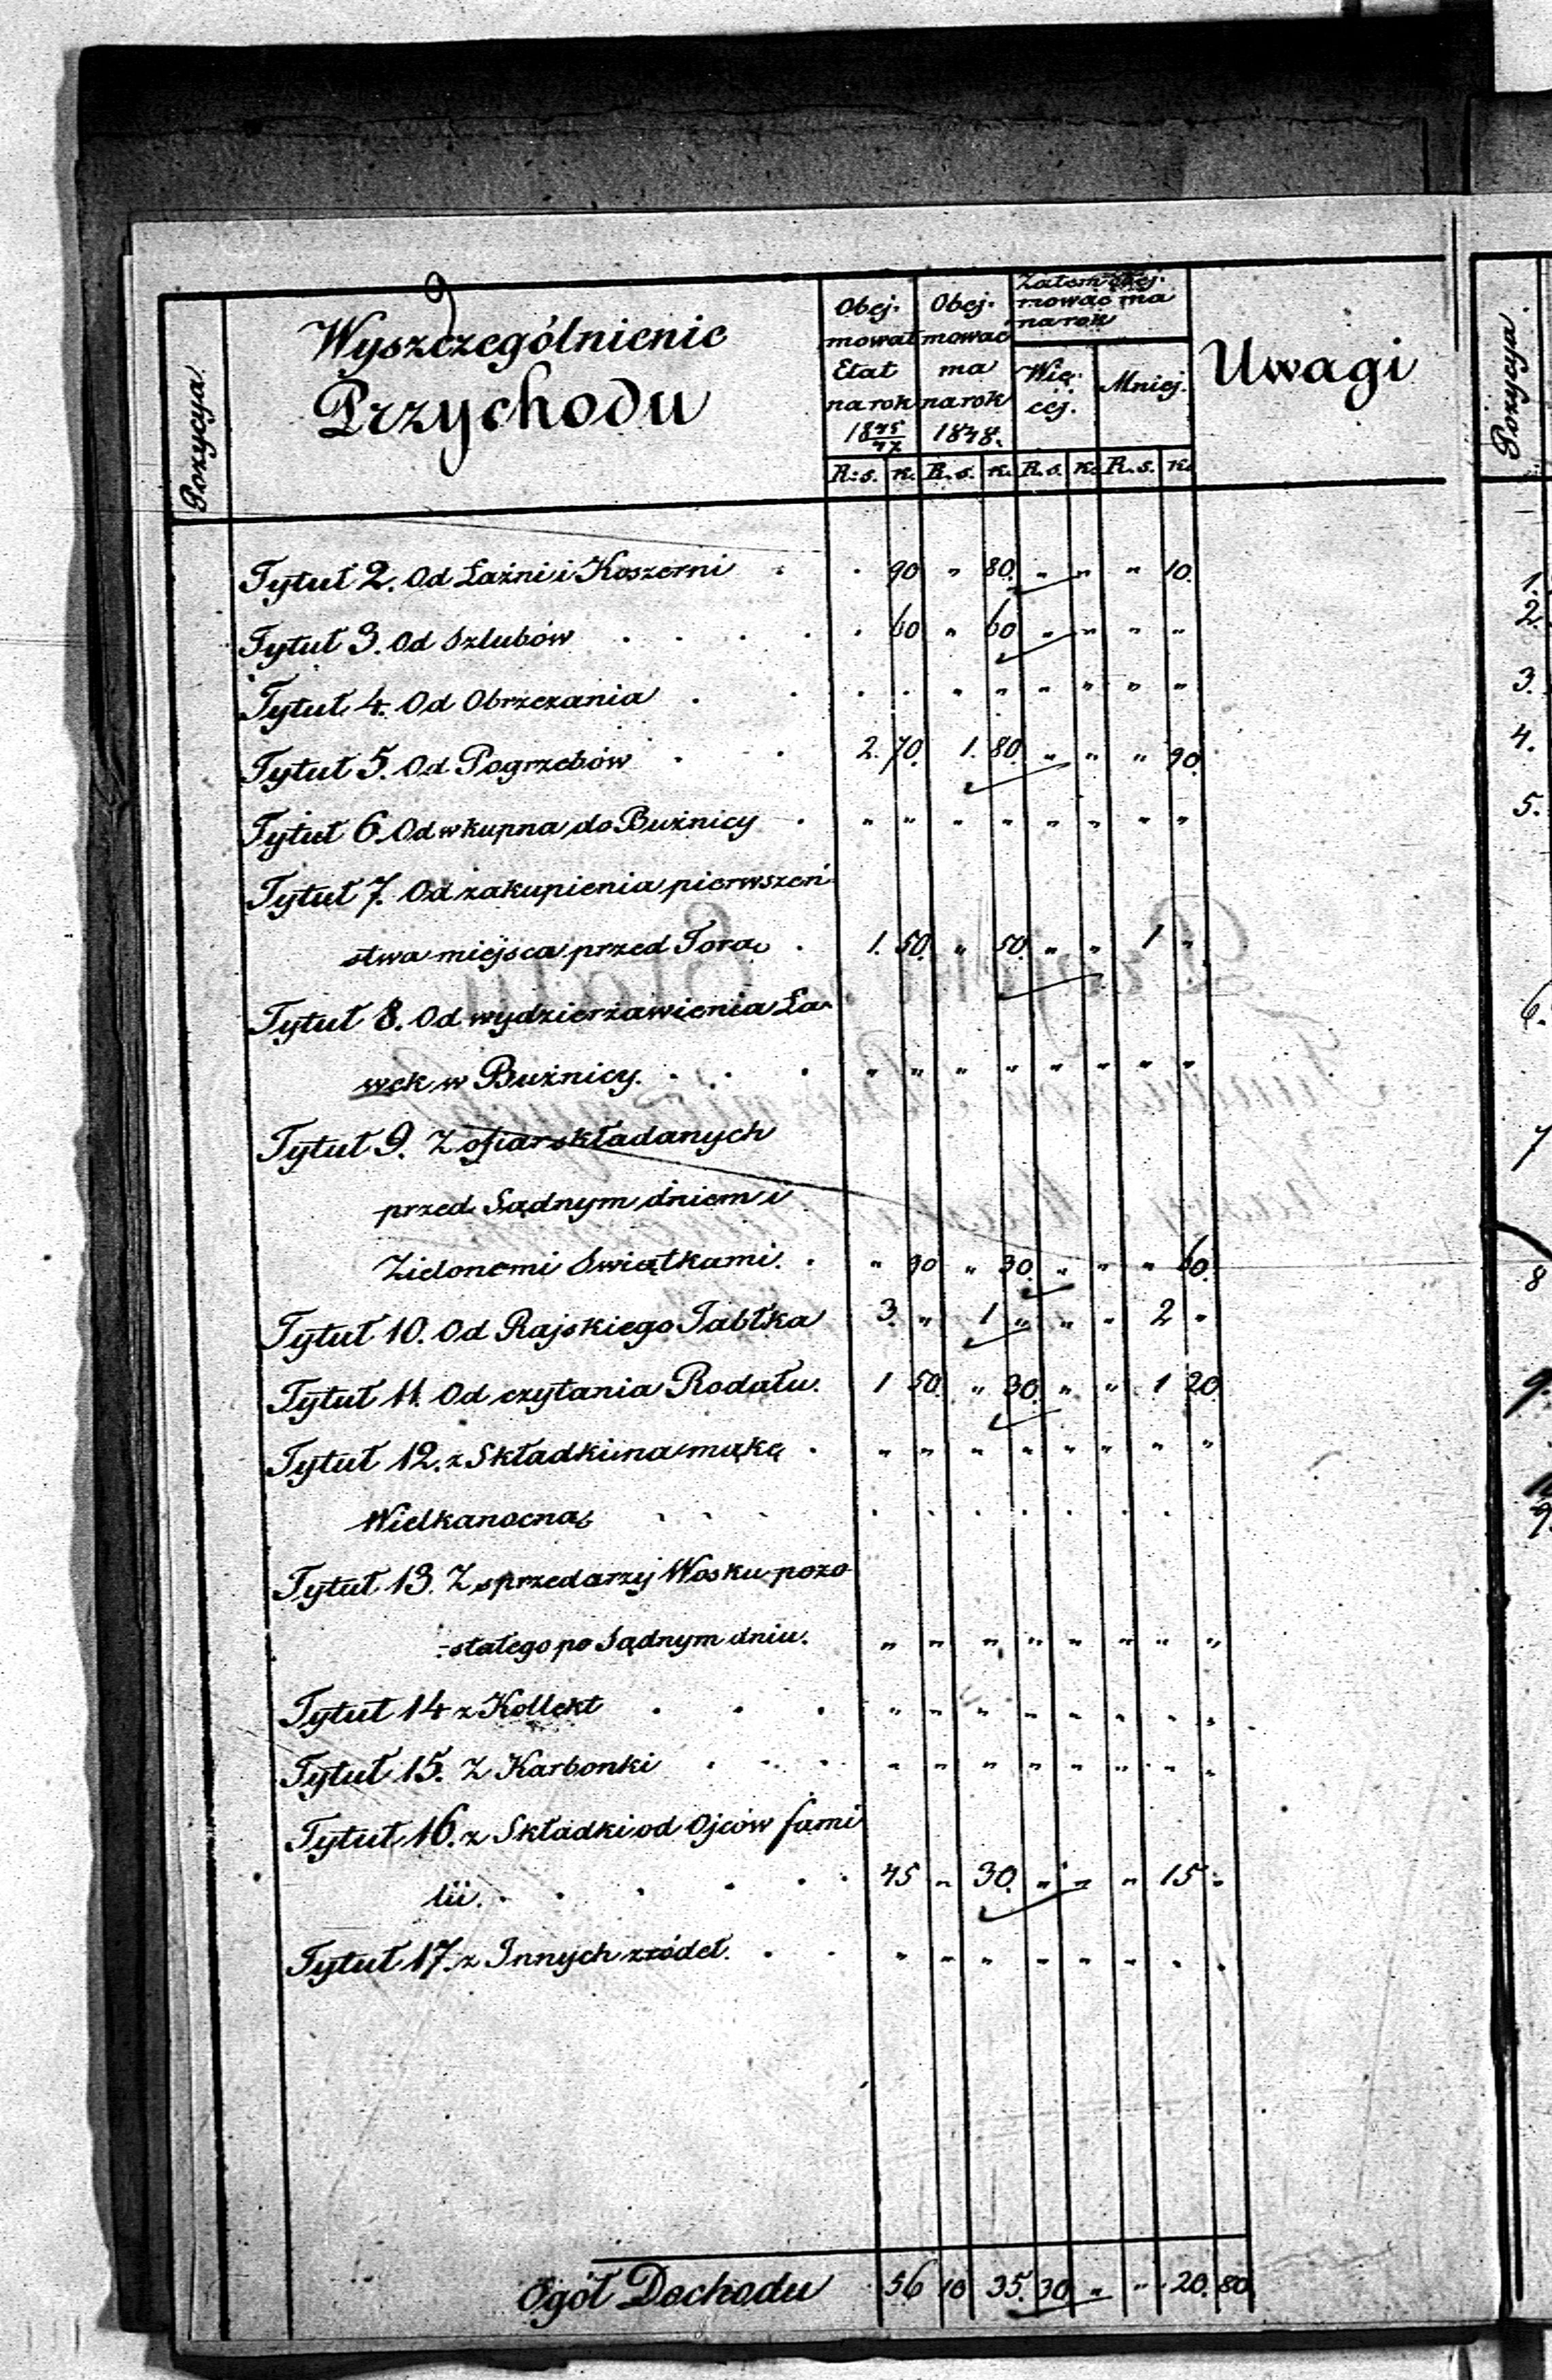 Pozycya
Wyszczególnienie
Przychodu
Obej-
mował
Etat
na rok
1845/47
Obej-
mować
ma
na rok
1848.
Zatem obej-
mować ma
na rok
Wię-
cej.
Mniej.
Uwagi
R. s. k. R. s. k. R. s. k. R. s. k.
Tytuł 2. Od Łaźni i Koszerni . . 90 " 80. " " " 10.
Tytuł 3. Od Szlubów . . . . . 60 " 60 " " " "
Tytuł 4. Od Obrzezania . . . . " " " " " "
Tytuł 5. Od Pogrzebów . . 2. 70. 1. 80. " " " 90.
Tytuł 6. Od wkupna do Bużnicy . " " " " " " " "
Tytuł 7. Od zakupienia pierwszeń-
stwa miejsca przed Torą . 1. 50. " 50. " " 1 "
Tytuł 8. Od wydzierżawienia Ła-
wek w Bużnicy. . . . " " " " " " " "
Tytuł 9. Z ofiar składanych
przed Sądnym dniem i
Zielonemi Swiątkami. . " 90 " 30. " " " 60.
Tytuł 10. Od Rajskiego Jabłka 3 " 1 " " " 2 "
Tytuł 11. Od czytania Rodału. 1 50. " 30. " " 1 20.
Tytuł 12. z Składki na mąkę . " " " " " " " "
Wielkanocną . . . . . . . . . . .
Tytuł 13. Z sprzedarzy Wosku pozo-
-stałego po Sądnym dniu. " " " " " " " "
Tytuł 14 z Kollekt . . . " " " " " " " "
Tytuł 15. Z Karbonki . . . " " " " " " " "
Tytuł 16. z Składki od Ojców fami-
lii. . . . . . . 45 " 30. " " " 15 "
Tytuł 17. z Innych zródeł. . . " " " " " " " "
Ogół Dochodu 56 10 35. 30 " " 20. 80.
Pozycya.
1.
2.
3.
4.
5.
6.
7
8
9.